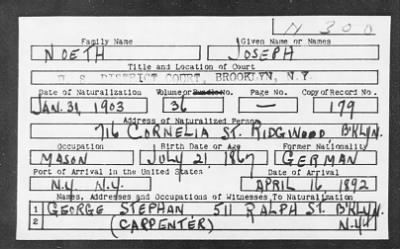 N 300
Family Name Given Name or Names
NOETH JOSEPH
Title and Location of Court
U. S. DISTRICT COURT, BROOKLYN, N.Y.
Date of Naturalization Volume or Bundle No. Page No. Copy of Record No.
JAN. 31, 1903 36 — 179
Address of Naturalized Person
716 CORNELIA ST. RIDGWOOD, B'KLYN.
Occupation Birth Date or Age Former Nationality
MASON JULY 21 1867 GERMAN
Port of Arrival in the United States Date of Arrival
N.Y. N.Y. APRIL 16, 1892
Names, Addresses and Occupations of Witnesses To Naturalization
1 GEORGE STEPHAN 511 RALPH ST. B'KLYN.
2 (CARPENTER) N.Y.